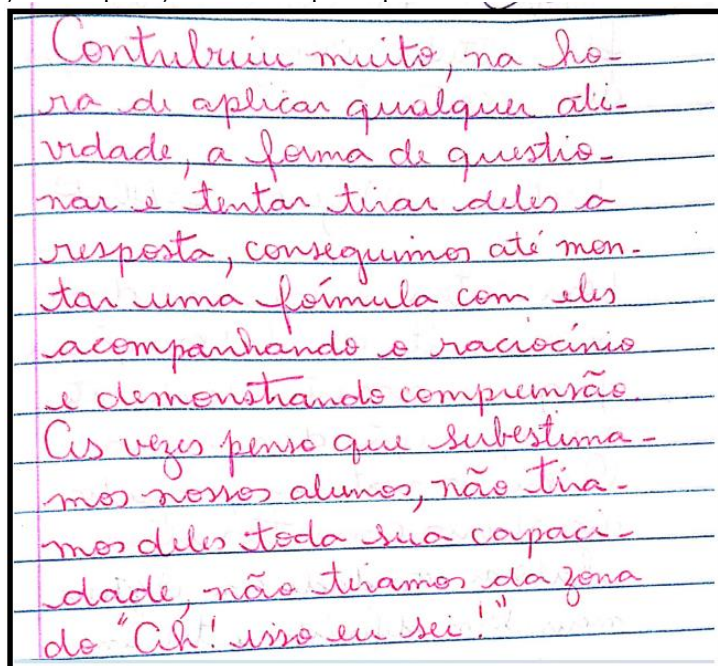 Contribuiu muito, na ho-
ra de aplicar qualquer ati-
vidade, a forma de questio-
nar e tentar tirar deles a
resposta, conseguimos até mon-
tar uma fórmula com eles
acompanhando o raciocínio
e demonstrando compreensão.
As vezes penso que subestima-
mos nossos alunos, não tira-
mos deles toda sua capaci-
dade, não tiramos da zona
do "Ah! isso eu sei!"